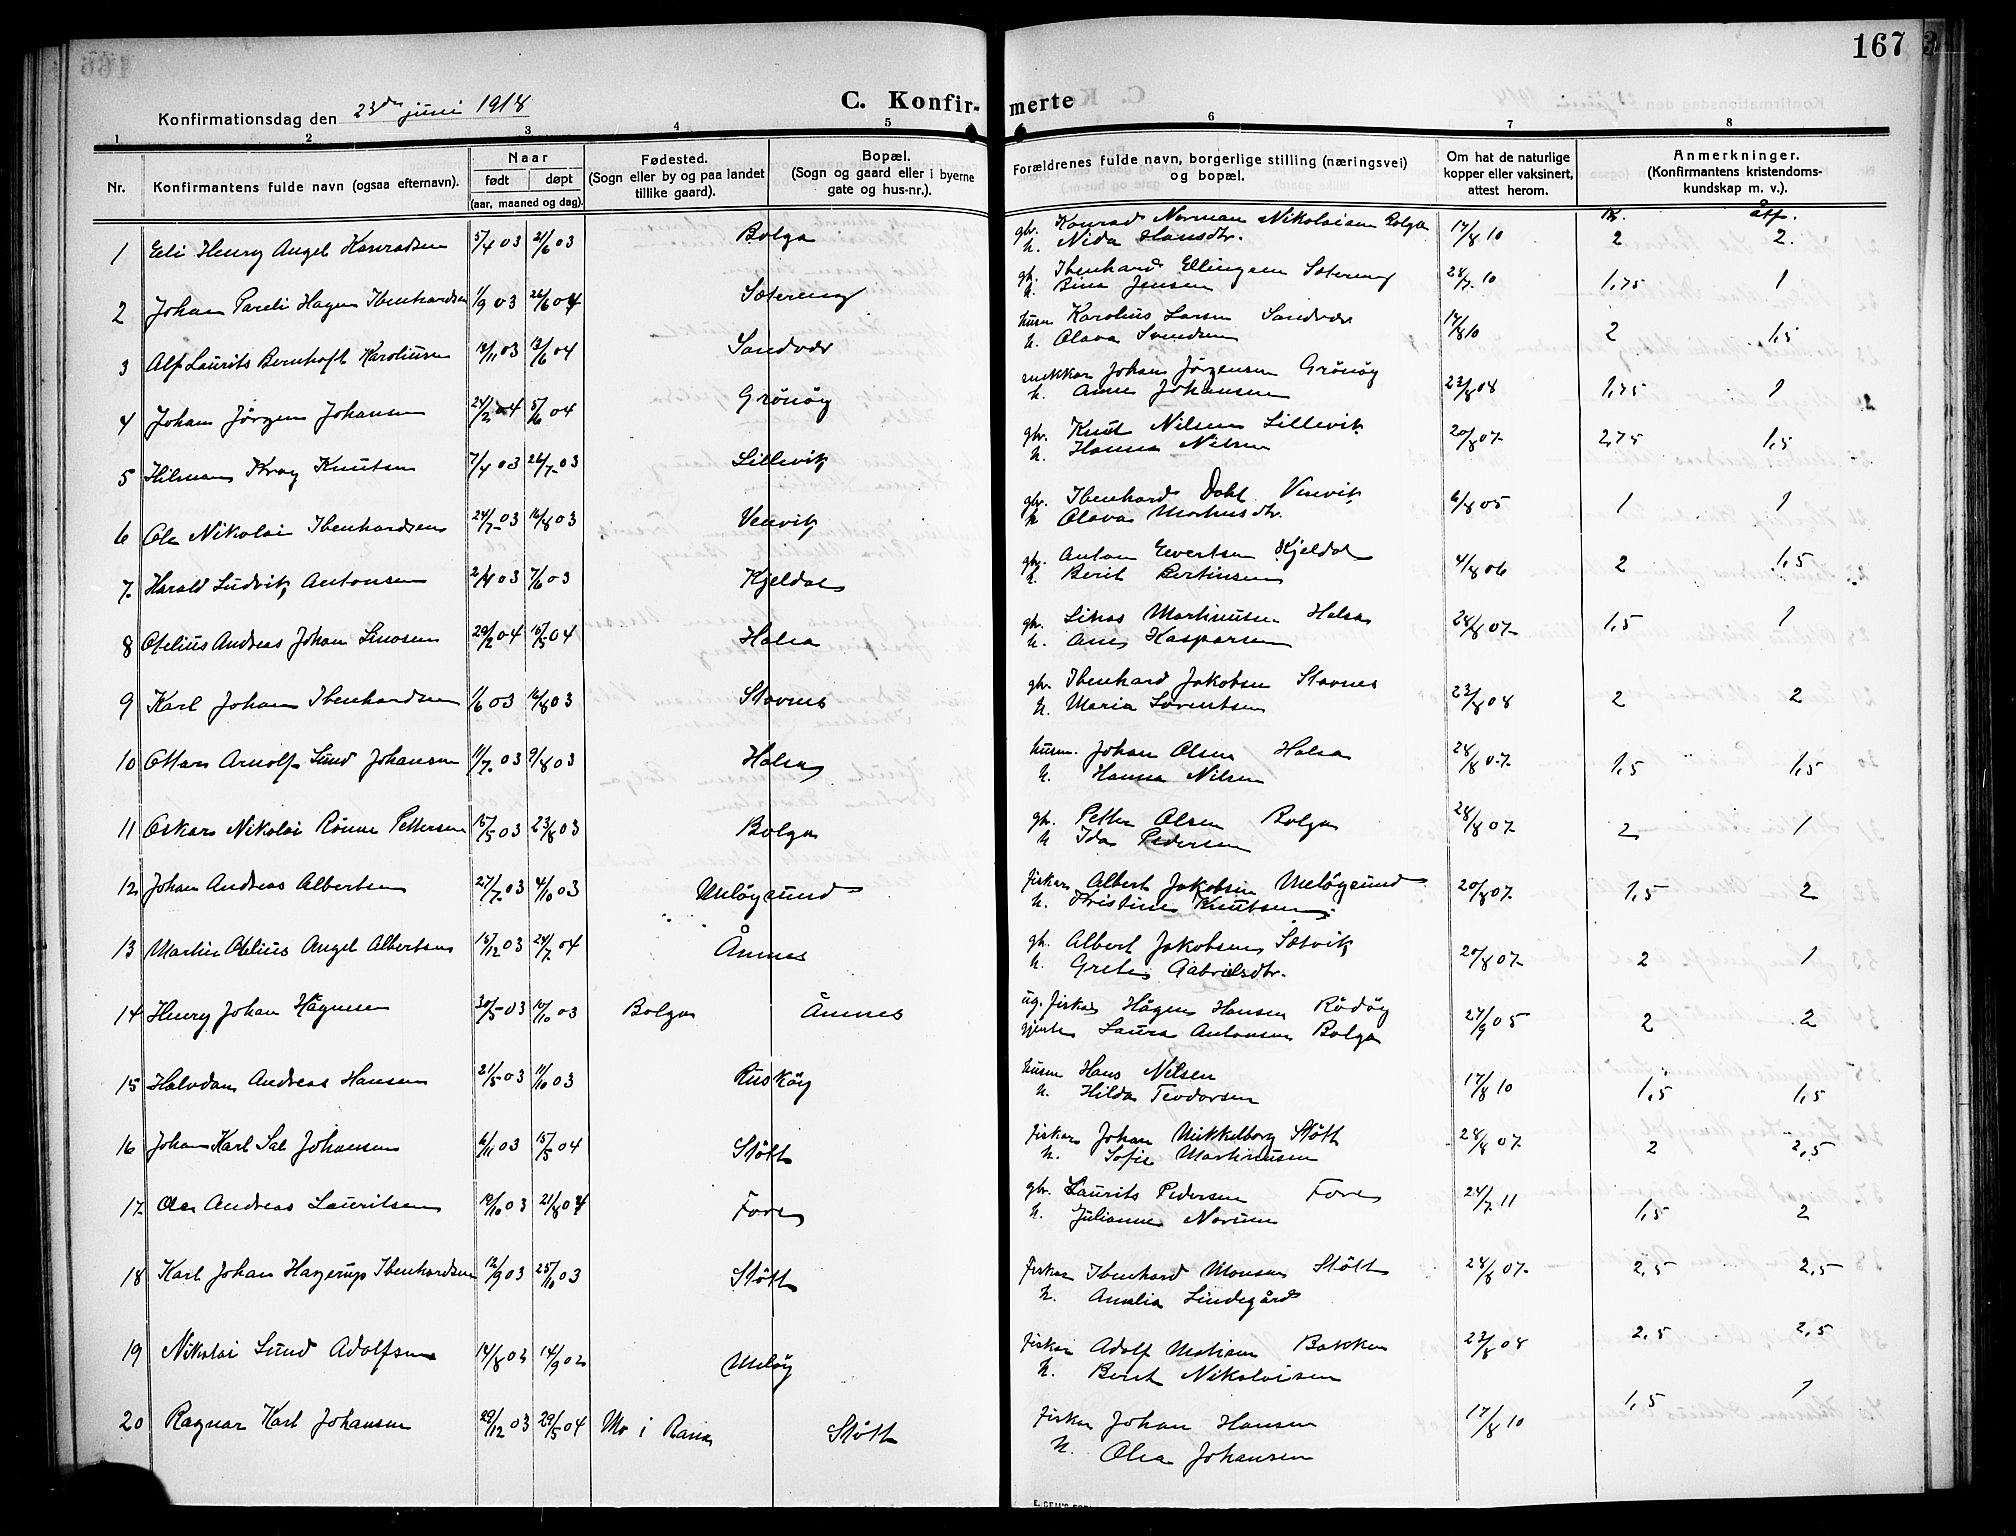 167
C. Konfirmerte
Konfirmationsdag den 23de juni 1918
1 2 3 4 5 6 7 8
Nr. Konfirmantens fulde navn (ogsaa efternavn). Naar født døpt (aar, maaned og dag). Fødested. (Sogn eller by og paa landet tillike gaard). Bopæl. (Sogn og gaard eller i byerne gate og hus-nr.). Forældrenes fulde navn, borgerlige stilling (næringsvei) og bopæl. Om hat de naturlige kopper eller vaksinert, attest herom. Anmerkninger. (Konfirmantens kristendoms-kundskap m. v.).
1 Eli Henry Angel Konradsen 5/4 03 21/6 03 Bolga gbr. Konrad Norman Nikolaisen Bolga 17/8 10 2 2.
h. Nida Hansdtr.
2 Johan Pareli Hagen Ibenhardsen 1/9 03 26/6 04 Sæterøy gbr. Ibenhard Ellingsen Sæterøy 28/7 10 1,75 1
h. Bina Jensen
3 Alf Laurits Bernhoft Karoliussen 19/11 03 19/6 04 Sandvær husm Karolius Larsen Sandvær 17/8 10 2 1,5
h. Olava Svendsen
4 Johan Jørgen Johansen 24/2 04 5/6 04 Grönöy snekker Johan Jørgensen Grönöy 23/8 08 1,75 1
h. Anna Johansen
5 Hilman Kray Knutsen 7/4 03 26/7 03 Lillevik gbr. Knut Nilsen Lillevik 20/8 07 2,75 1,5
h. Hanna Nilsen
6 Ole Nikolai Ibenhardsen 24/7 03 16/8 03 Venvik gbr. Ibenhard Dahl Venvik 6/8 05 1 1
h Olava Markusdtr.
7 Harald Ludvik Antonsen 2/4 03 7/6 03 Kjeldal gbr. Anton Evertsen Kjeldal 4/8 06 2 1,5
h. Berit Bertinsen
8 Otelius Andreas Johan Linosen 29/2 04 15/5 04 Halsa gbr. Linas Martinusen Halsa 28/8 07 1,5 1
h. Ane Kasparsen
9 Karl Johan Ibenhardsen 1/6 03 16/8 03 Stavnes gbr. Ibenhard Jakobsen Stavnes 23/8 08 2 2
h. Maria Lorentsen
10 Ottar Arnolf Lund Johansen 11/7 03 9/8 03 Halsa husm. Johan Olsen Halsa 28/8 07 1,5 1,5
h. Hanna Nilsen
11 Oskar Nikolai Rönne Pettersen 15/5 03 23/8 03 Bolga gbr. Petter Olsen Bolga 28/8 07 2 1
h Ida Pedersen
12 Johan Andreas Albertsen 27/7 03 4/10 03 Meløysund fisker Albert Jakobsen Meløysund 20/8 07 1,5 2
h. Kristine Knutsen
13 Martin Otelius Angel Albertsen 15/12 03 24/7 04 Åmnes gbr. Albert Jakobsen Sætvik 20/8 07 2 1
h. Grete Gabrielsdtr.
14 Henry Johan Hågensen 30/5 03 10/10 03 Bolga Åmnes ug. fisker Hågen Hansen Rödöy 27/9 05 2 2
pjente Laura Antonsen Bolga
15 Halvdan Andreas Hansen 21/5 03 11/10 03 Rusköy husm Hans Nilsen 17/8 10 1,5 1,5
h. Hilda Teodorsen
16 Johan Karl Sal Johansen 6/11 03 15/5 04 Stött fisker Johan Mikkelborg Stött 28/8 07 2 2,5
h. Sofie Martinusen
17 Ole Andreas Lauritsen 19/10 03 21/8 04 Fore gbr. Laurits Pedersen Fore 24/7 11 1,5 2
h. Julianne Norum
18 Karl Johan Hagerup Ibenhardsen 12/9 03 25/10 03 Stött fisker Ibenhard Monsen Stött 28/8 07 2,5 2,5
h. Amalia Lindegård
19 Nikolai Lund Adolfsen 14/8 02 14/9 02 Meløy fisker Adolf Matisen Bakken 23/8 08 2,5 2,5
h. Berit Nikolaisen
20 Ragnar Karl Johansen 29/12 03 29/5 04 Mo i Rana Stött fisker Johan Hansen 17/8 10 1,5 1
h. Olea Johansen